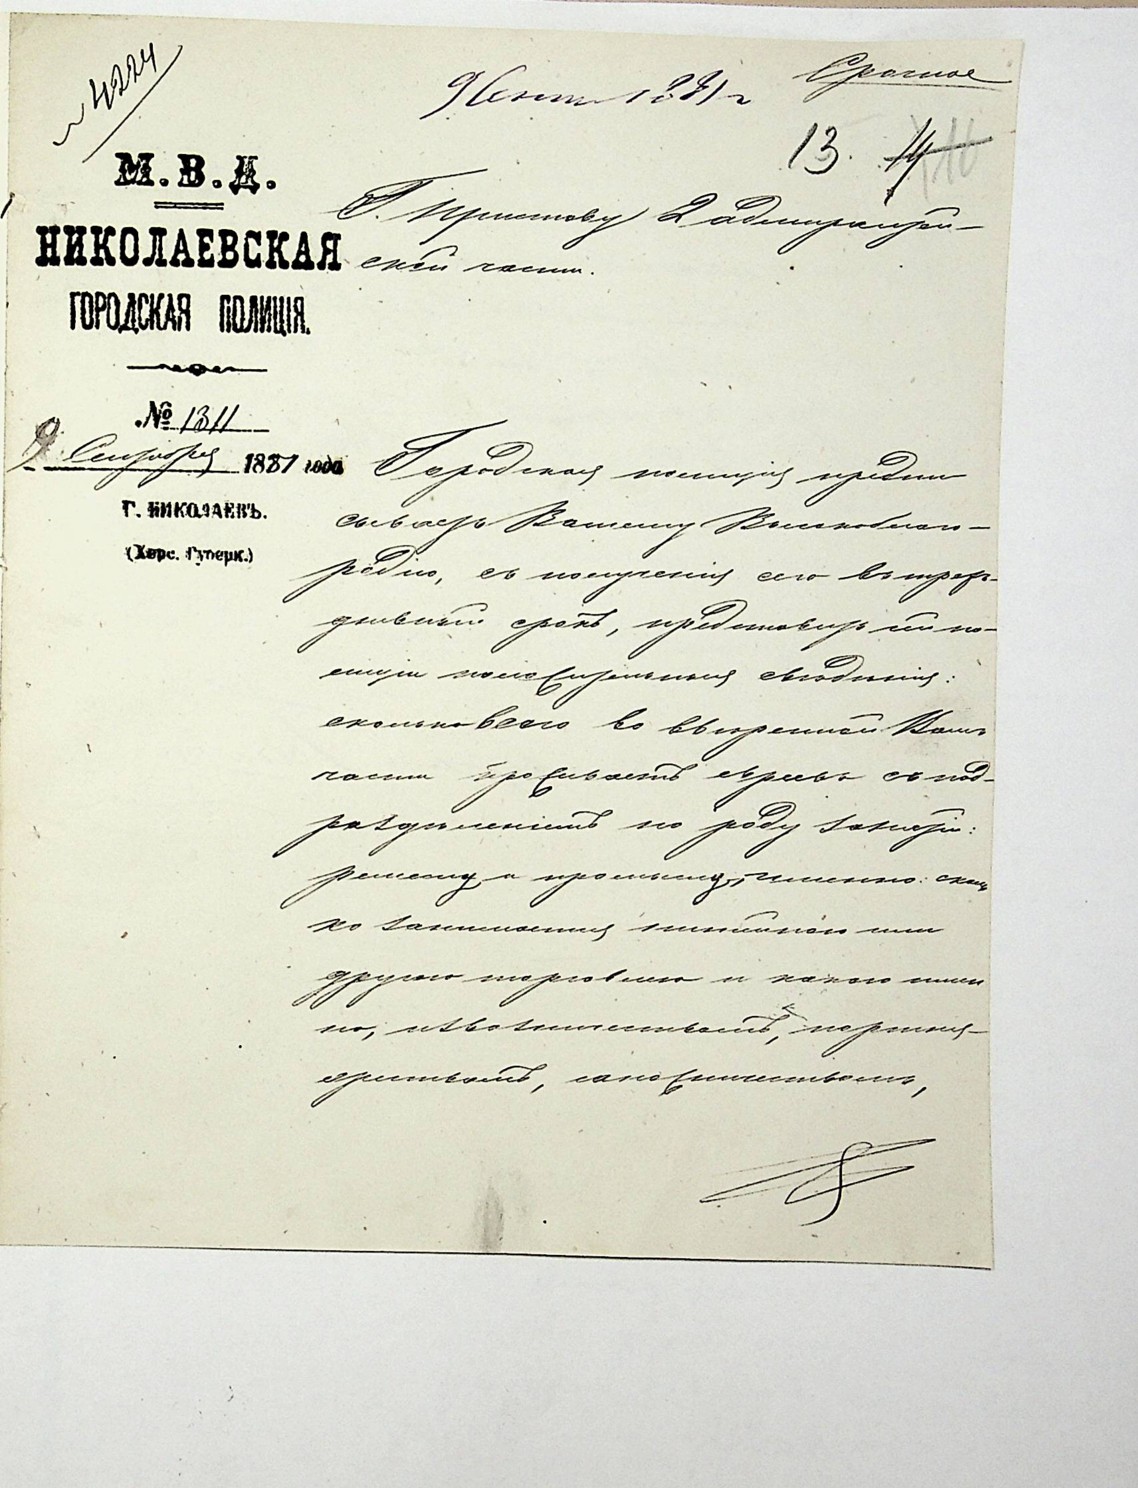 № 4224
9 Сент 1881 г
Срочное
13. 14 16
М.В.Д.
НИКОЛАЕВСКАЯ
ГОРОДСКАЯ ПОЛИЦІЯ.
№ 1311
9 Сентября 1881 года
Г. НИКОЛАЕВЪ.
(Херс. Губерн.)
Г. Приставу 2 адмиралтей-
ской части.
Городская полиція предпи
сываетъ Вашему Высокоблаго-
родію, съ полученія сего въ трех-
дневный срокъ, представить ей по-
сколько всего во ввѣренной Вамъ
части проживаетъ евреевъ съ под-
раздѣленіемъ по роду занятій:
ремеслу и промыслу, именно: сколь
ко занимается питейною или
другою торговлею и какою имен
но, извозничествомъ, портня-
жествомъ, сапожничествомъ,